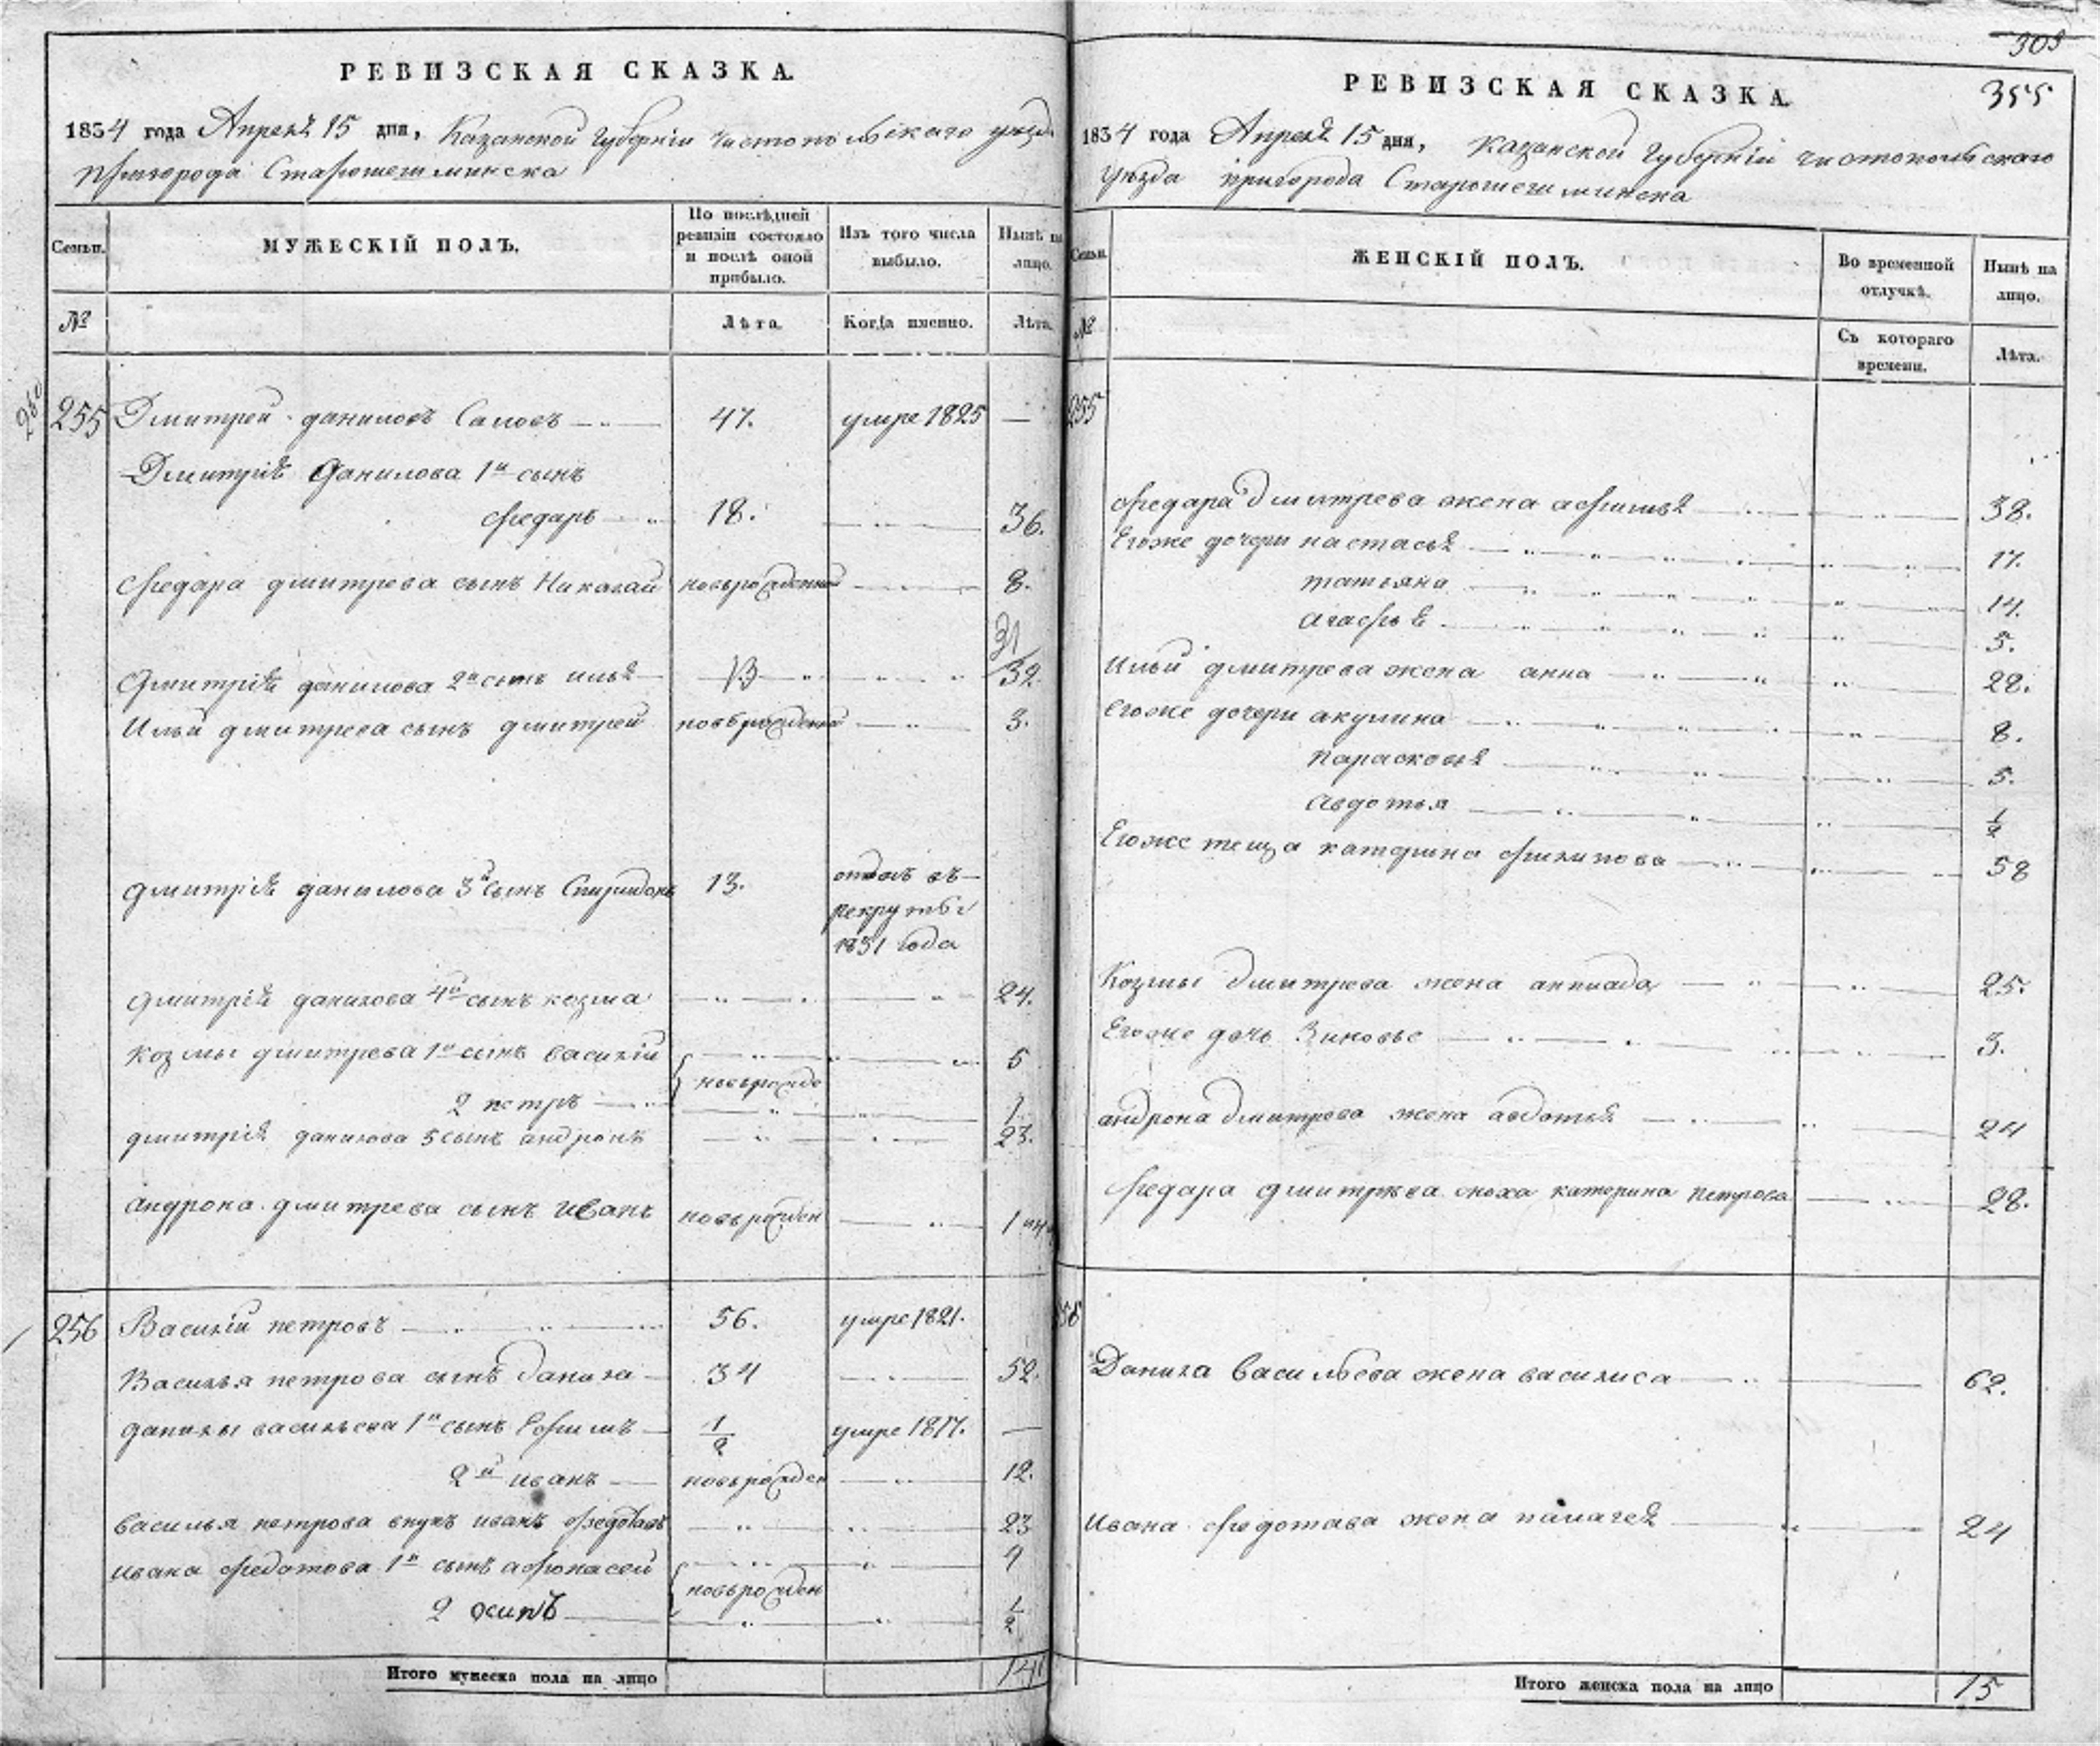 РЕВИЗСКАЯ СКАЗКА.
1834 года Апреля 15 дня, Казанской Губернiи Чистопольскаго уезд
пригорода Старошешминска
Семьи.
МУЖЕСКІЙ ПОЛЪ.
По послѣдней ревизіи состояло и послѣ оной прибыло.
Изъ того числа выбыло.
Нынѣ на лицо.
№
Лѣта.
Когда именно.
Лѣта.
255 Дмитрей даниловъ Саловъ 47. умре 1825 —
Дмитрiя Данилова 1й сынъ
Федаръ 18. 36.
Федара дмитрева сынъ Никалай новърожденной 8.
31
дмитрiя данилова 2й сынъ илья 13 32.
Ильи дмитрева сынъ дмитрей новърожденной 3.
дмитрiя данилова 3й сынъ Спиридонъ 13. отданъ въ
рекруты
1831 года
дмитрiя данилова 4й сынъ козма 24.
козмы дмитрева 1й сынъ василiй 5
новърожде
2 петръ 1
дмитрiя данилова 5 сынъ андронъ 23.
андрона дмитрева сынъ иванъ новърожден 1
256 Василiй петровъ 56. умре 1821.
Василья петрова сынъ данила 34 52.
данилы васильева 1й сынъ Ефимъ 1/2 умре 1817. —
2й иванъ новърожден 12.
василья петрова внукъ иванъ федотовъ 23
ивана федотова 1й сынъ афонасей 4
новърожден
2 осипъ 1/2
Итого мужеска пола на лицо 14
РЕВИЗСКАЯ СКАЗКА.
303
355
1834 года Апреля 15 дня, Казанской Губернiи чистопольскаго
уезда пригорода Старошешминска
Семьи.
ЖЕНСКІЙ ПОЛЪ.
Во временной отлучкѣ.
Нынѣ на лицо.
№
Съ котораго времени.
Лѣта.
255
Федара дмитрева жена афимья 38.
Егоже дочери настасья 17.
татьяна 14.
агафья 5.
Ильи дмитрева жена анна 28.
егоже дочери акулина 8.
парасковья 5.
авдотья 1/2
Егоже теща катерина филипова 58
Козмы дмитрева жена 25.
Егоже дочь Зиновье 3.
андрона дмитрева жена авдотья 24
Федара дмитрѣва сноха катерина петрова 28.
Данила васильева жена василиса 62.
Ивана федотава жена палагея 24
Итого женска пола на лицо 15